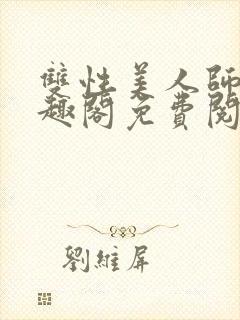 雙性美人師
趣閣免費閱
劉維屏